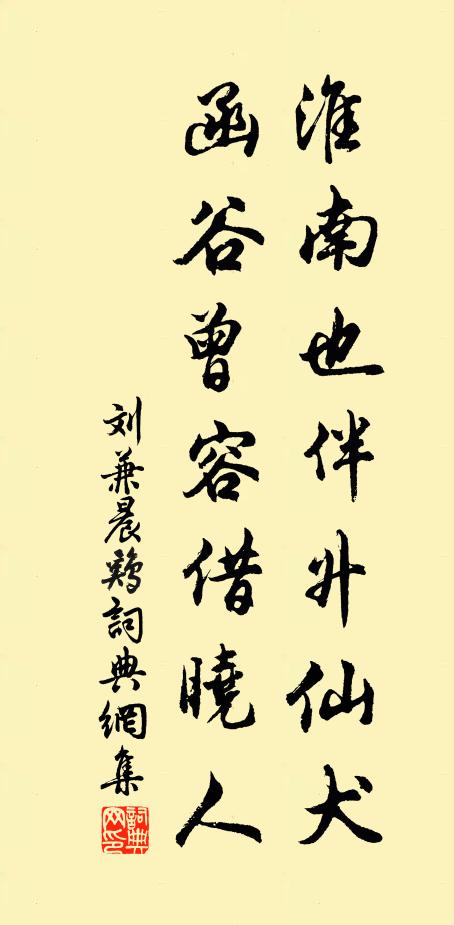 淮南也伴升仙犬
函谷曾容借曉人
刘兼晨鷄詞典網集
詞典网印